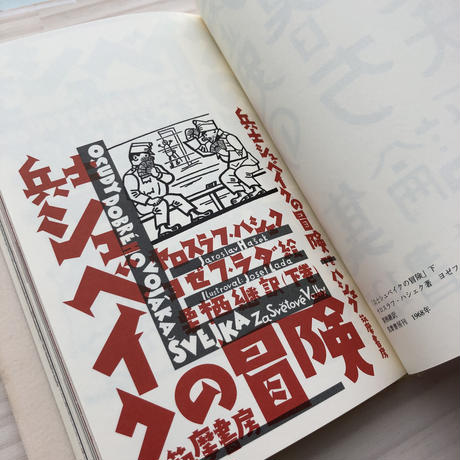 兵士シュベイクの冒険
OSUDY DOBRÉHO VOJÁKA
ŠVEJKA Za Světové Války
ヤロスラフ・ハシェク
Jaroslav Hašek
ヨゼフ・ラダ 絵
Ilustroval Josef Lada
栗栖 継 訳 (下巻)
筑摩書房
兵士シュベイクの冒険
筑摩書房
『兵士シュベイクの冒険』下
ヤロスラフ・ハシェク著 ヨゼフ
筑摩書房刊 1968年